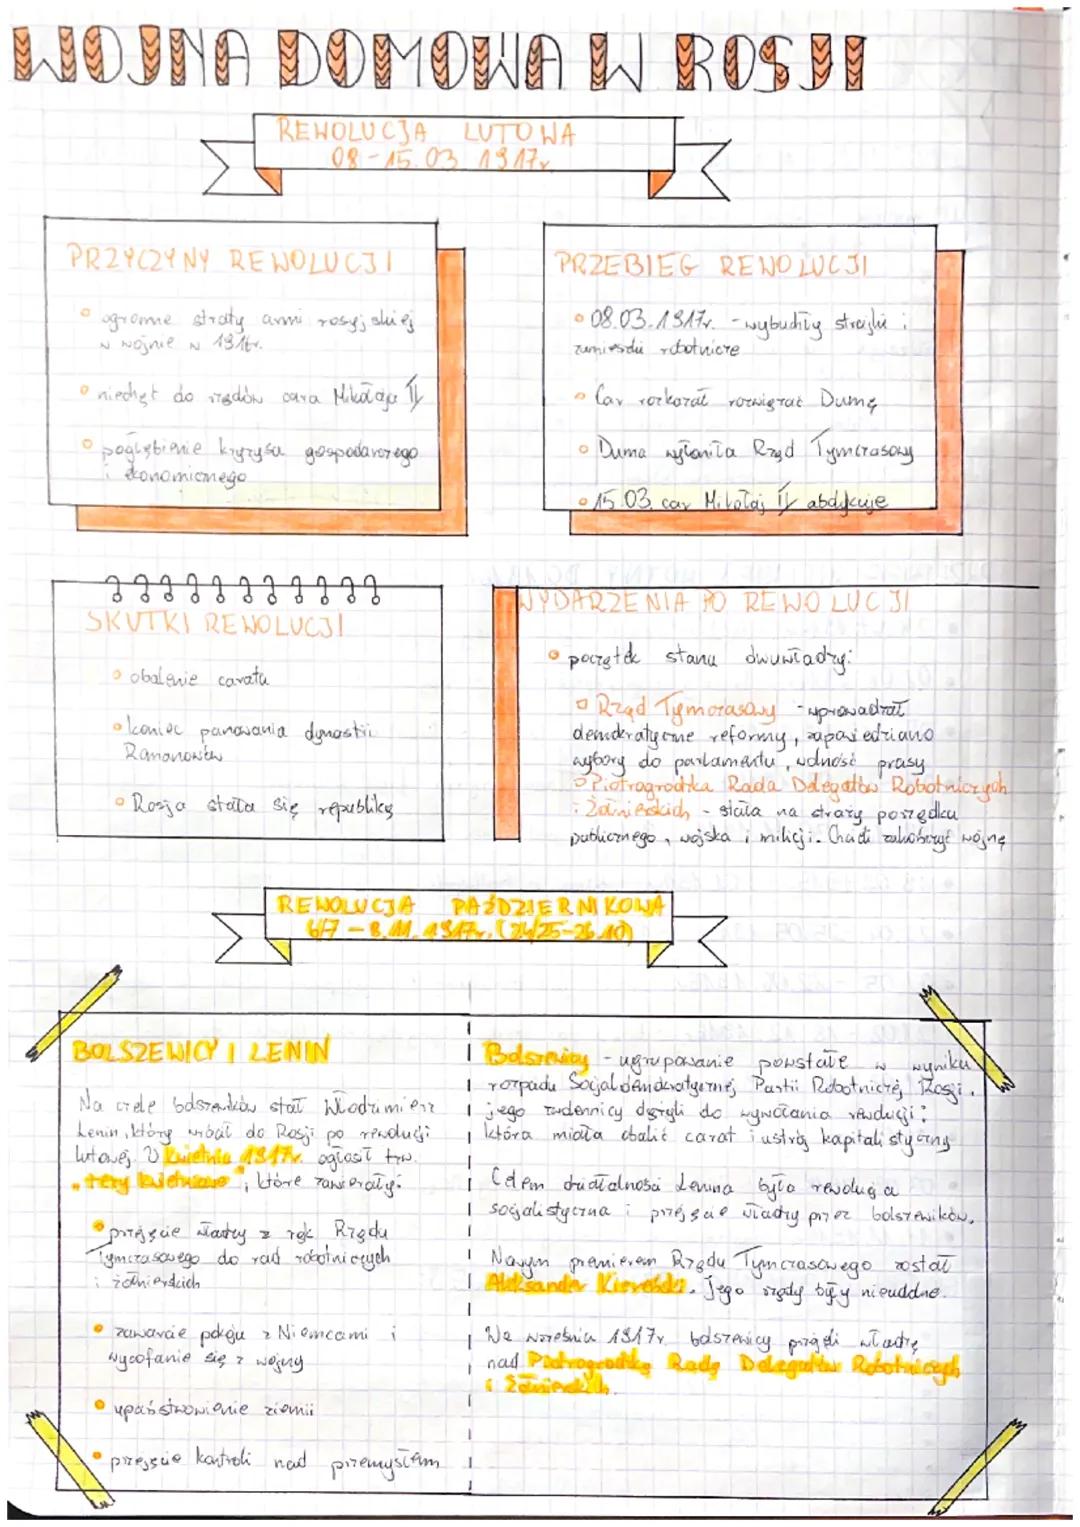 WOJNA DOMOWA W ROSJI
REWOLUCJA LUTOWA
08-15.03 1917r
PRZYCZYNY REWOLUCJI
ogromne straty armi rosyjskiej
w wojnie w 1916r.
niechęt do rządów cara Mikołaja II
pogłębienie kryzysu gospodarczego
i ekonomicznego
PRZEBIEG REWOLUCJI
08.03.1917r. - wybuchły strajki i
zamieszki robotnicze
Car rozkazał rozwiązać Dumę
Duma wyłoniła Rząd Tymczasowy
15.03. car Mikołaj II abdykuje
SKUTKI REWOLUCJI
obalenie caratu
koniec panowania dynastii
Romanowów
Rosja stała się republiką
WYDARZENIA PO REWOLUCJI
początek stanu dwuwładzy:
Rząd Tymczasowy - wprowadzał
demokratyczne reformy, zapowiedziano
wybory do parlamentu, wolność prasy
Piotrogrodzka Rada Delegatów Robotniczych
i Żołnierskich - stała na straży porządku
publicznego, wojska i milicji. Chcieli zakończyć wojnę
REWOLUCJA PAŹDZIERNIKOWA
6/7 - 8.11.1917r. (24/25-26.10)
BOLSZEWICY I LENIN
Na czele bolszewików stał Włodzimierz
Lenin, który wrócił do Rosji po rewolucji
lutowej. W kwietniu 1917r. ogłosił tzw.
"tezy kwietniowe", które zawierały:
przejęcie władzy z rąk Rządu
Tymczasowego do rad robotniczych
i żołnierskich
zawarcie pokoju z Niemcami i
wycofanie się z wojny
upaństwowienie ziemii
przejęcie kontroli nad przemysłem
Bolszewicy - ugrupowanie powstałe w wyniku
rozpadu Socjaldemokratycznej Partii Robotniczej Rosji.
jego zwolennicy dążyli do wywołania rewolucji:
która miała obalić carat i ustrój kapitalistyczny
Celem działalności Lenina była rewolucja
socjalistyczna i przejęcie władzy przez bolszewików.
Nowym premierem Rządu Tymczasowego został
Aleksander Kiereński. Jego rządy były nieudolne.
We wrześniu 1917r. bolszewicy przejęli władzę
nad Piotrogrodzką Radą Delegatów Robotniczych
i Żołnierskich.